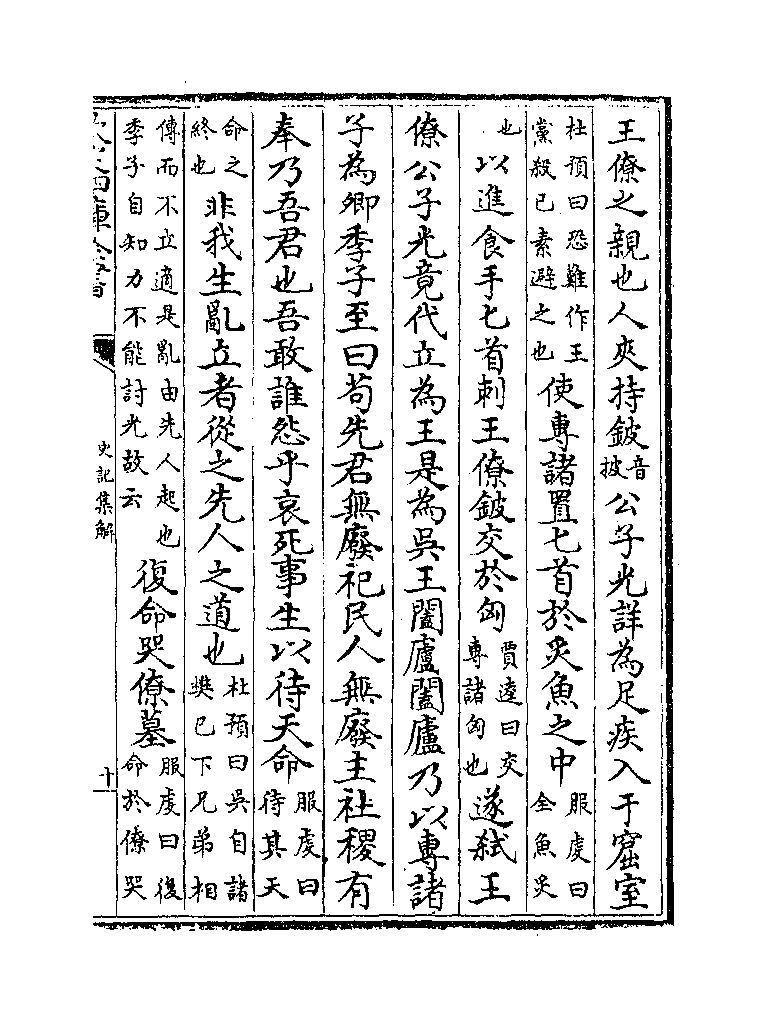 王僚之親也人夾持鈹音披公子光詳為足疾入于窟室
杜預曰恐難作王黨殺已素避之也使專諸置匕首於炙魚之中服虔曰全魚炙
也以進食手匕首刺王僚鈹交於匈賈逵曰交專諸匈也遂弑王
僚公子光竟代立為王是為吳王闔廬闔廬乃以專諸
子為卿季子至曰苟先君無廢祀民人無廢主社稷有
奉乃吾君也吾敢誰怨乎哀死事生以待天命服虔曰待其天
命之終也非我生亂立者從之先人之道也杜預曰吳自諸樊已下兄弟相
傳而不立適是亂由先人起也季子自知力不能討光故云復命哭僚墓服虔曰復命於僚哭
史記集解
十